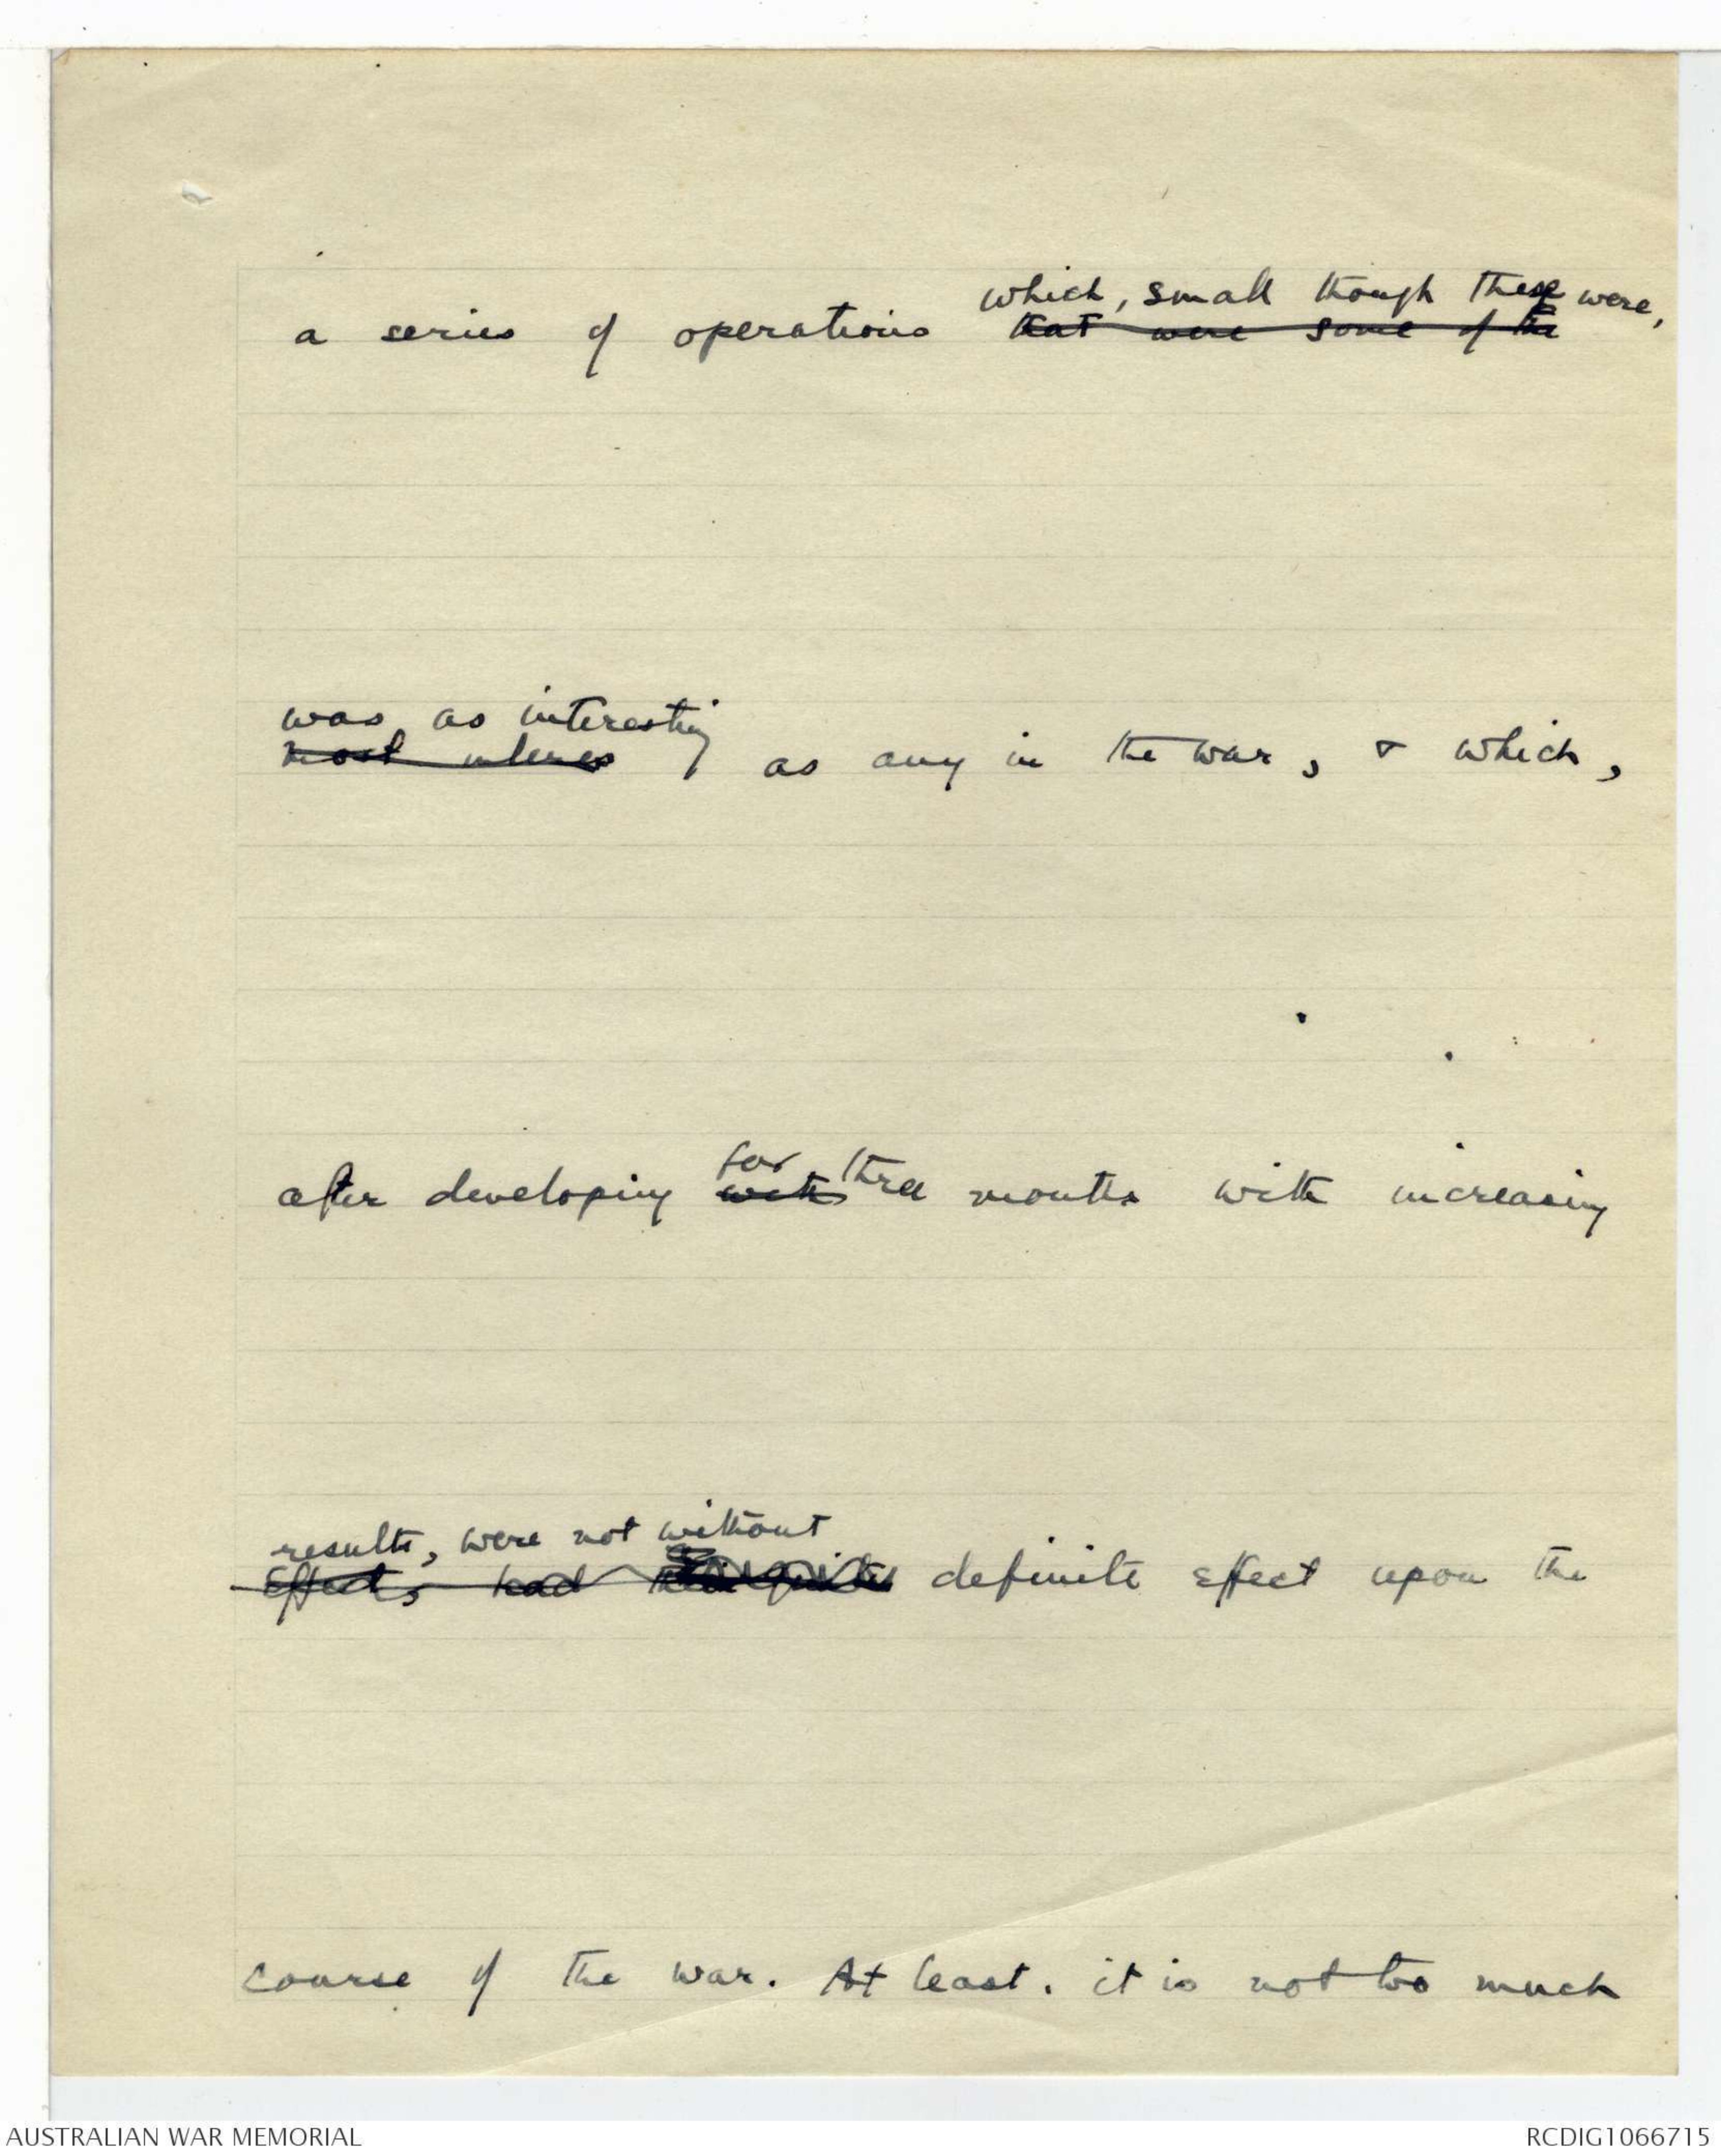 which, small though these were,
a series of operations that were some of the
was as interesting
most interes as any in the war, & which,
for three
after developing with months with increasing
results, were not without
Effects, had definite effect upon the
course of the war. At least. it is not too much
AUSTRALIAN WAR MEMORIAL
RCDIG1066715